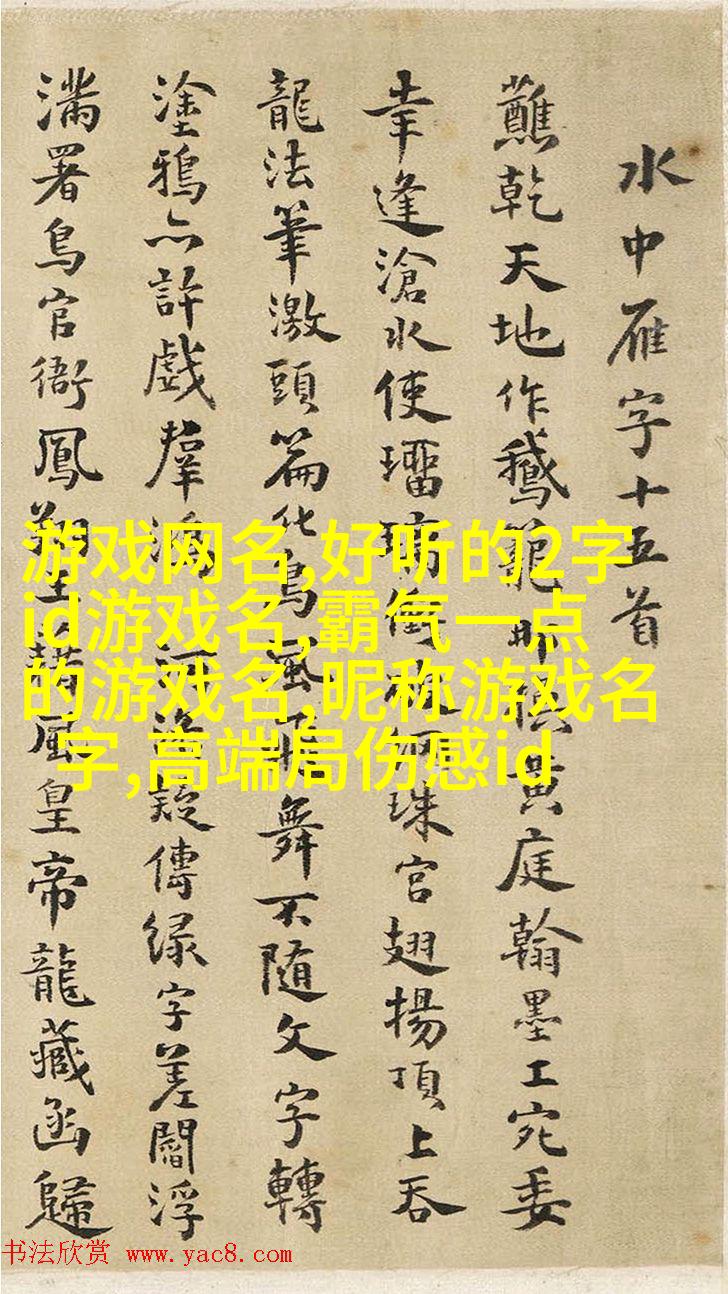 水中雁字十五首
蘸乾天地作鵝供黄庭翰墨工宛委
幸逢滄水使珠宮翅揚頂上吞
龍法筆激頭篇化鳥風飛舞不随文字轉
塗鴉亦許戲羣鴻河洛疑傳緑字差閻浮
滿署鳥官衙鳳皇帝龍藏函歸
游戏网名,好听的2字
id游戏名,霸气一点
的游戏名,昵称游戏名
字,高端局伤感id
书法欣赏 www.yac8.com